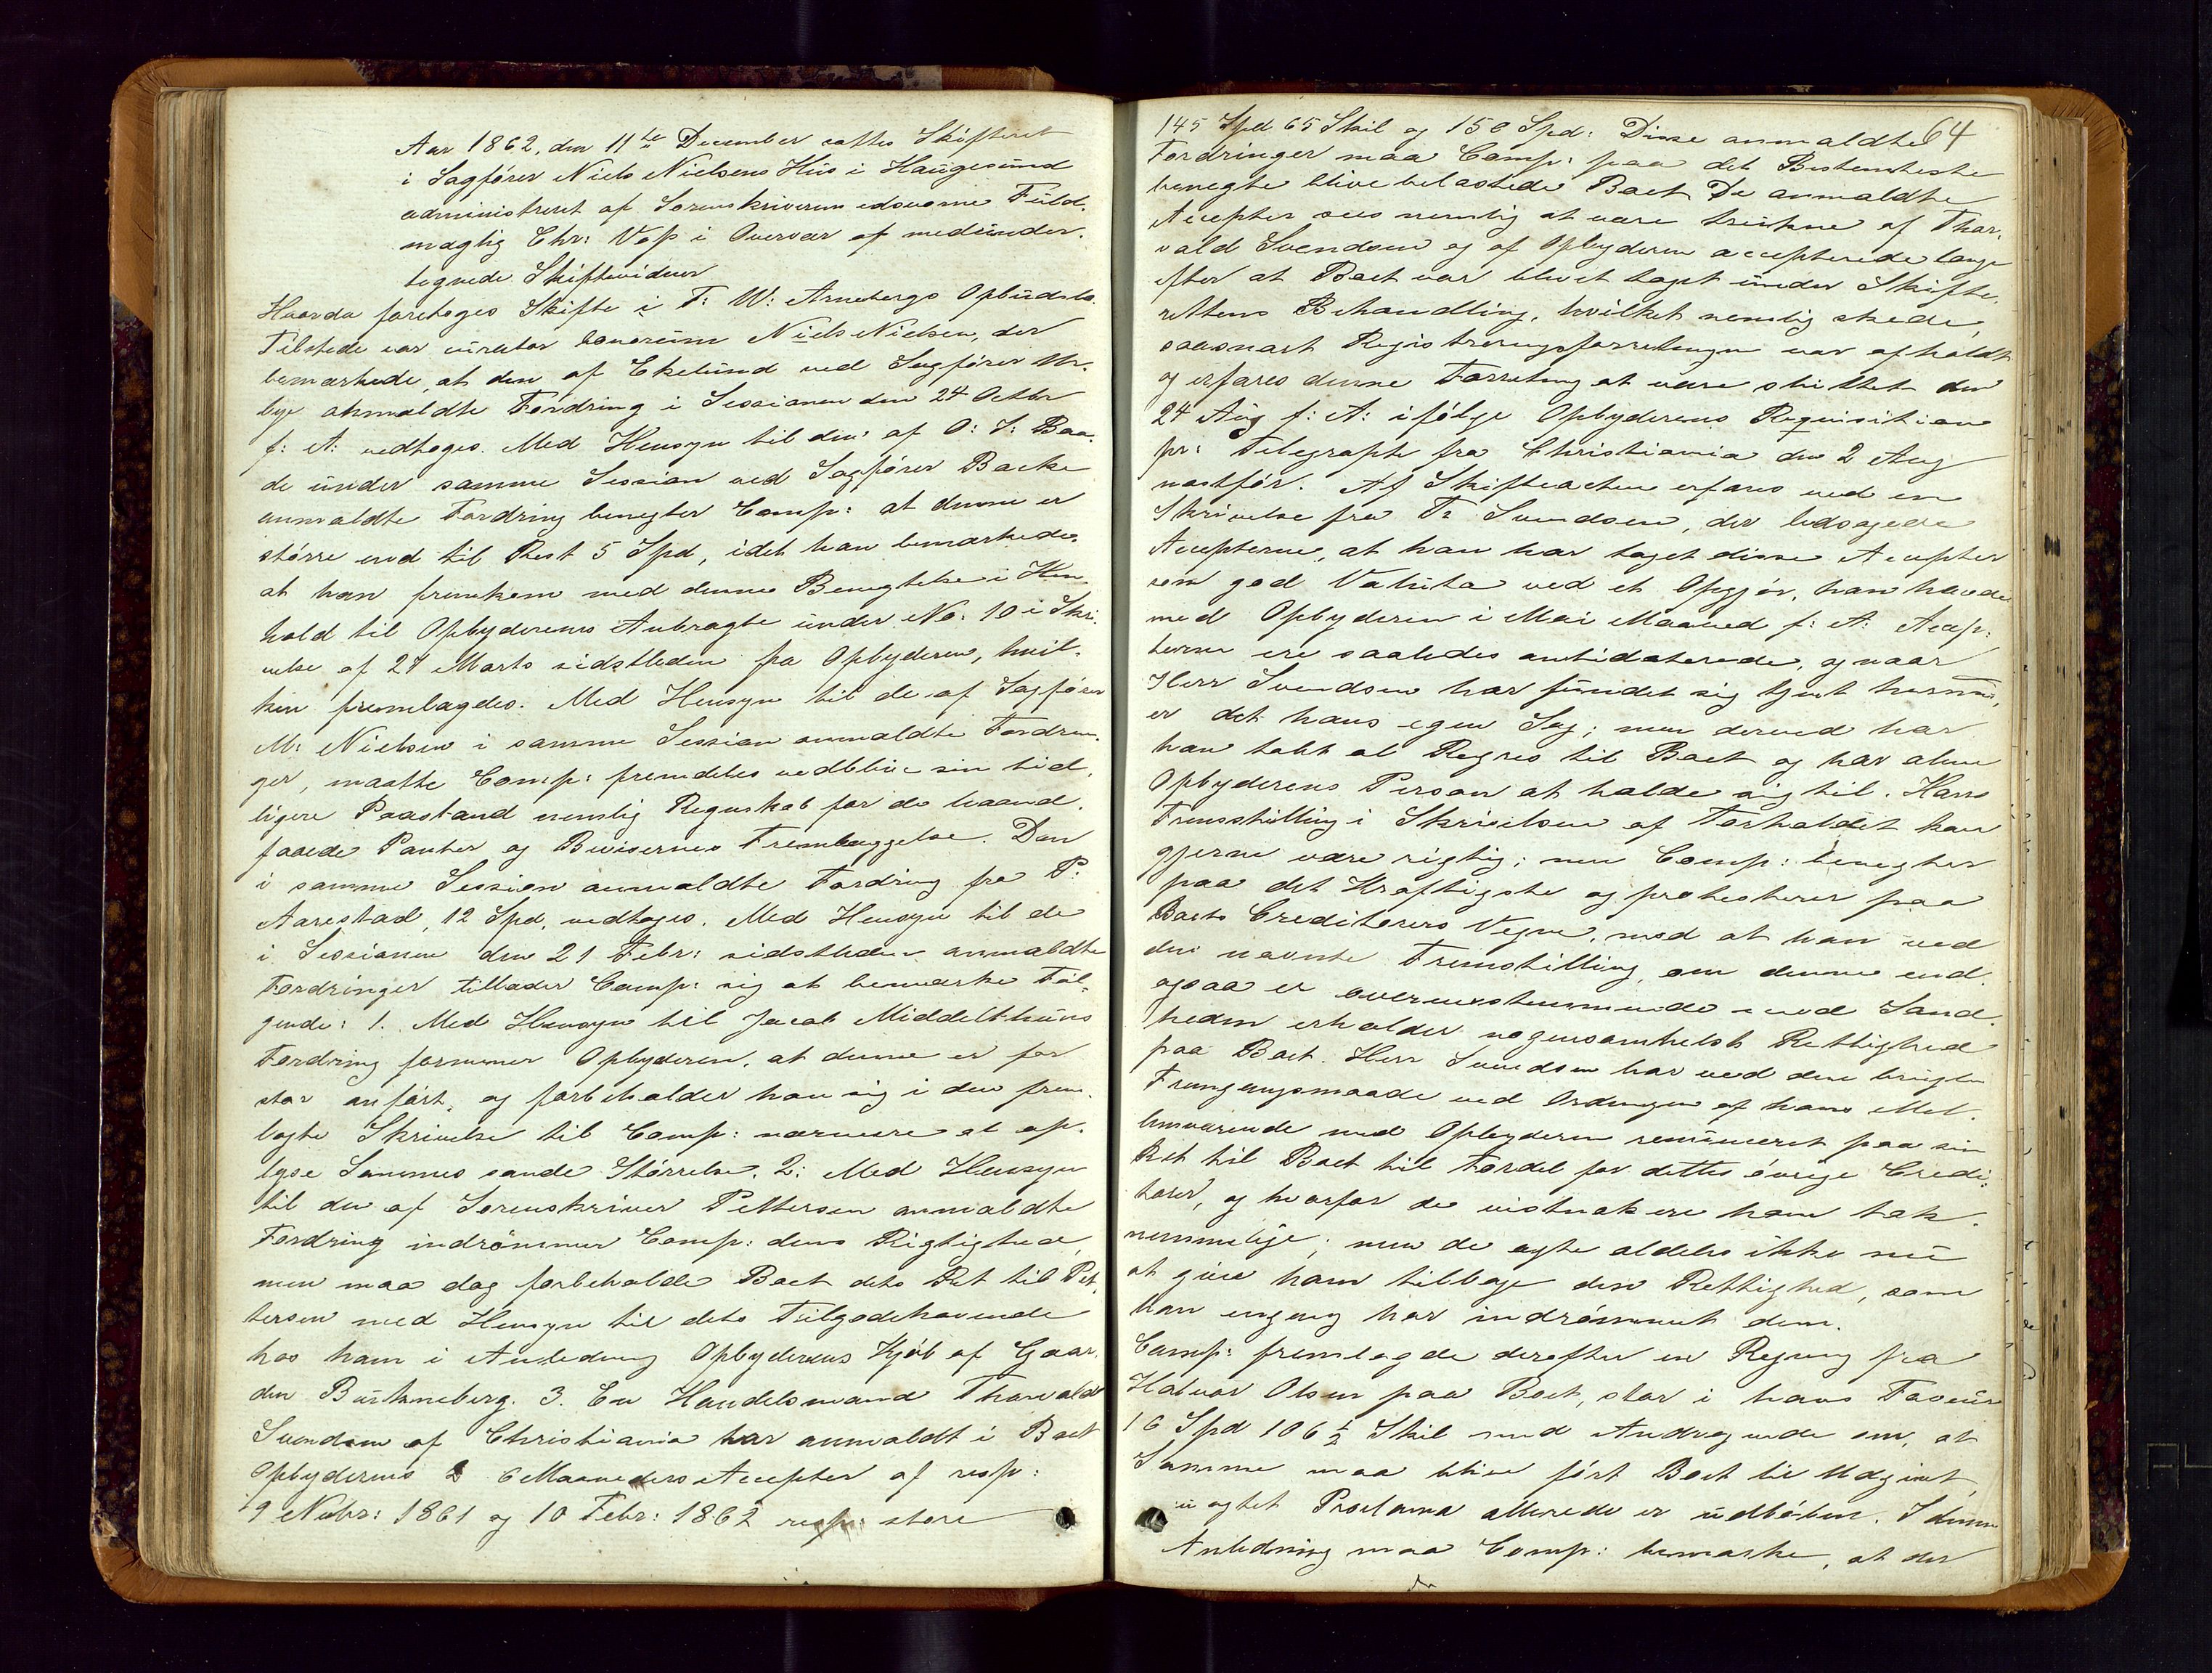 Aar 1862, den 11te December sattes Skifteret
i Sagfører Niels Nielsens Hus i Haugesund
administreret af Sorenskriverens edsvorne Fuld-
mægtig Chr: Voss i Overvær af medunder-
tegnede Skiftevidner
Hvorda foretoges Skifte i T: W: Arnebergs Opbudsbo.
Tilstede var curator bonorum Niels Nielsen, der
bemærkede, at den af Ekelund ved Sagfører
anmeldte Fordring i Sessionen den 24 Octbr
f: A: vedtoges. Med Hensyn til den af O: S: Baa-
de under samme Session ved Sagfører Backe
anmeldte Fordring benegter Comp: at denne er
større end til Rest 5 Spd, idet han bemærkede,
at han fremkom med denne Benegtelse i Hen-
hold til Opbyderens Anbragte under No: 10 i Skri-
velse af 27 Marts sidstleden fra Opbyderen, hvil-
ken fremlagdes. Med Hensyn til de af Sagfører
M: Nielsen i samme Session anmeldte Fordrin-
ger, maatte Comp: fremdeles vedblive sin tid-
ligere Paastand nemlig Regnskab for de haand-
faaede Panter og Bevisernes Fremlæggelse. Den
i samme Session anmeldte Fordring fra P:
Aarestad, 12 Spd, vedtoges. Med Hensyn til de
i Sessionen den 21 Febr: sidstleden anmeldte
Fordringer tillader Comp: sig at bemærke Føl-
gende: 1. Med Hensyn til Jacob Middelthuns
Fordring formener Opbyderen, at denne er for
stor anført, og forbeholder han sig i den frem-
lagte Skrivelse til Comp: nærmere at op-
lyse Sammes sande Størrelse. 2: Med Hensyn
til den af Sorenskriver Pettersen anmeldte
Fordring indrømmer Comp: dens Rigtighed,
men maa dog forbeholde Boet dets Ret til Pet-
tersen med Hensyn til dets Tilgodehavende
hos ham i Anledning Opbyderens Kjøb af Gaar-
den 3. En Handelsmand Thorvald
Svendsen af Christiania har anmeldt i Boet
Opbyderens 2 6 Maaneders Accepter af resp:
19 Novbr: 1861 og 10 Febr: 1862 resp: store
64
145 Spd 65 Skil og 150 Spd: Disse anmeldte
Fordringer maa Comp: paa det Bestemteste
benegte blive belastede Boet. De anmeldte
Accepter sees nemlig at være trukne af Thor-
vald Svendsen og af Opbyderen accepterede længe
efter at Boet var blevet taget under Skifte-
rettens Behandling, hvilket nemlig skede,
saasnart Registreringsforretningen var afholdt
og erfares denne Forretning at være sluttet den
24 Aug f: A: ifølge Opbyderens Requisition
pr: Telegraph fra Christiania den 2 Aug
næstfør. Af Skifteacten erfares ved en
Skrivelse fra T: Svendsen, der ledsagede
Accepterne, at han har taget disse Accepter
som god Valuta ved et Opgjør, han havde
med Opbyderen i Mai Maaned f: A: Accep-
terne ere saaledes antidaterede, og naar
Herr Svendsen har fundet sig tjent hermed,
er det hans egen Sag; men derved har
han tabt al Regres til Boet og har alene
Opbyderens Person at holde sig til. Hans
Fremstilling i Skrivelsen af Forholdet kan
gjerne være rigtig; men Comp: benegter
paa det Kraftigste og protesterer paa
Boets Creditorers Vegne, mod at han ved
den nævnte Fremstilling, om denne end-
ogsaa er overensstemmende med Sand-
heden erholder nogensomhelst Rettighed
paa Boet. Herr Svendsen har ved den brugte
Fremgangsmaade ved Ordningen af hans Mel-
lemværende med Opbyderen renunceret paa sin
Ret til Boet til Fordel for dettes øvrige Credi-
torer, og hvorfor de vistnok ere ham tak-
nemmelige; men de agte aldeles ikke nu
at give ham tilbage den Rettighed, som
han engang har indrømmet dem.
Comp: fremlagde derefter en Regning fra
Halvor Olsen paa Boet, stor i hans Faveur
16 Spd 106 1/2 Skil med Andragende om, at
Samme maa blive ført Boet til Udgivt,
uagtet Proclama allerede er udløben. I denne
Anledning maa Comp: bemærke, at der